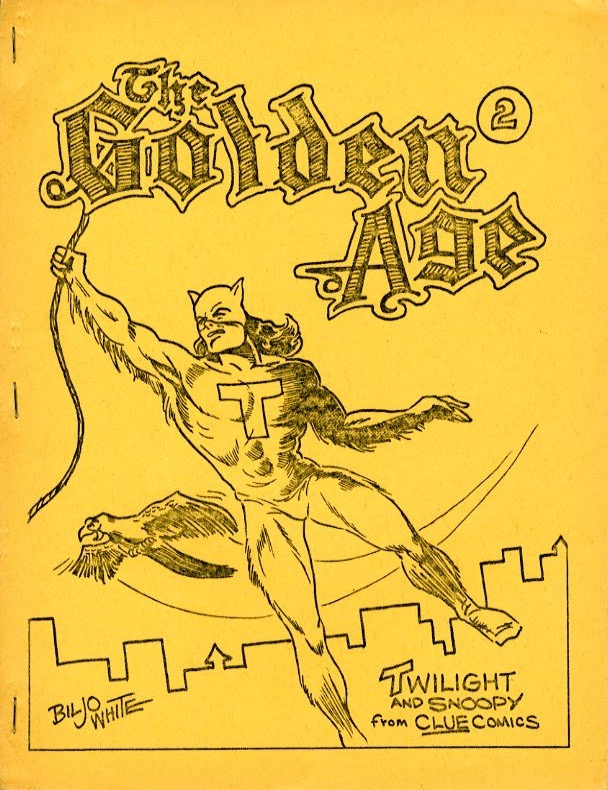 The
Golden
2
Age
T
BILJO
WHITE
TWILIGHT
AND SNOOPY
from CLUE COMICS